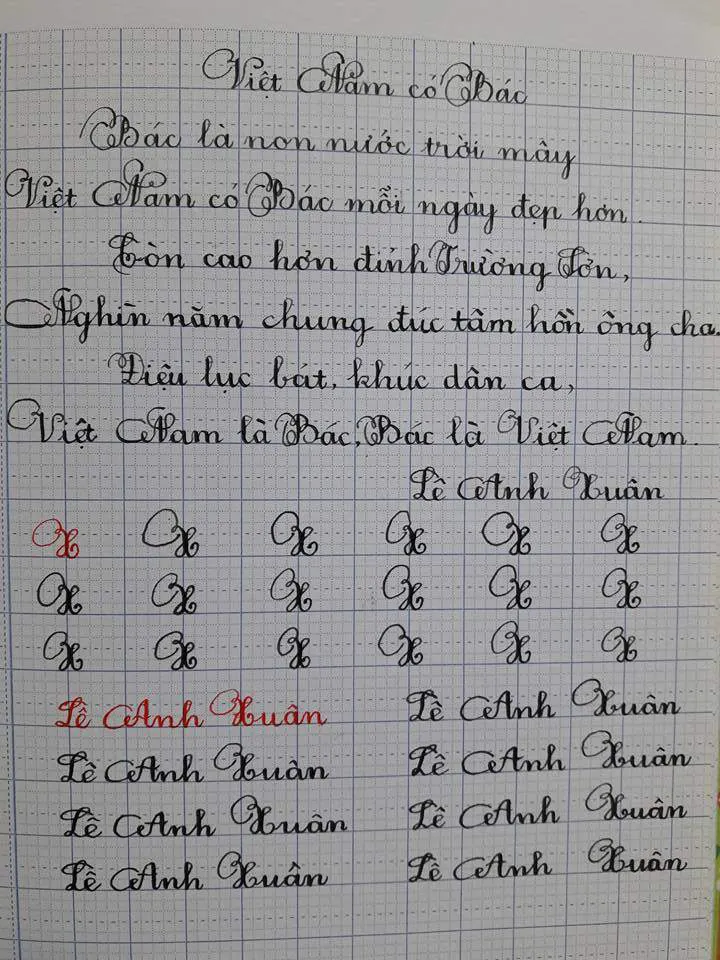 Việt Nam có Bác
Bác là non nước trời mây
Việt Nam có Bác mỗi ngày đẹp hơn.
Còn cao hơn đỉnh Trường Sơn,
Nghìn năm chung đúc tâm hồn ông cha.
Điệu lục bát, khúc dân ca,
Việt Nam là Bác, Bác là Việt Nam.
Lê Anh Xuân
X X X X X X
X X X X X X
X X X X X X
Lê Anh Xuân Lê Anh Xuân
Lê Anh Xuân Lê Anh Xuân
Lê Anh Xuân Lê Anh Xuân
Lê Anh Xuân Lê Anh Xuân